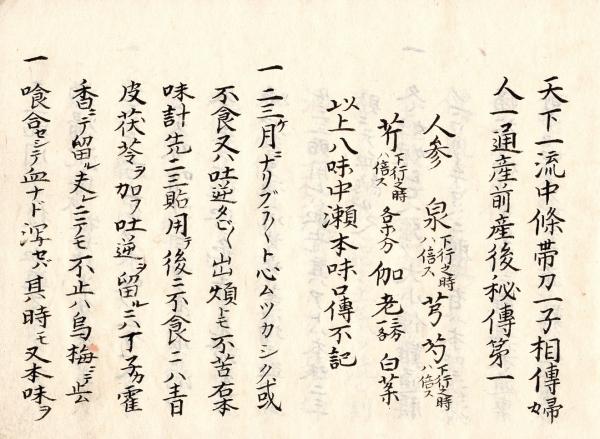 天下一流中條帯刀一子相傳婦
人一通産前産後秘傳第一
人参 泉下行之時ハ倍ス 芎 芍下行之時ハ倍ス
芹下行之時ハ倍ス 各等分 伽老 白菜
以上八味中瀬本味口傳不記
一 二三ケ月ニナリブラ〳〵ト心ムツカシク或
不食又ハ吐逆タビ〳〵出煩トモ不苦右本
味計先二三貼用テ後ニ不食ニハ青
皮茯苓ヲ加フ吐逆ヲ留ルニハ丁子霍
香ニテ留ル夫レニテモ不止ハ烏梅ニテ止
一 喰合セシテ血ナド瀉セハ其時モ又本味ヲ